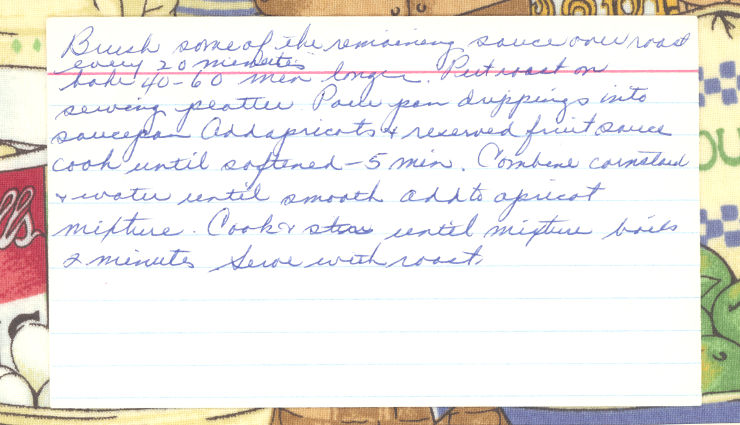 Brush some of the remaining sauce over roast
every 20 minutes
bake 40-60 min longer. Put roast on
serving platter. Pour pan drippings into
saucepan Add apricots & reserved fruit sauce
cook until softened - 5 min. Combine cornstarch
& water until smooth add to apricot
mixture. Cook & stir until mixture boils
2 minutes Serve with roast.